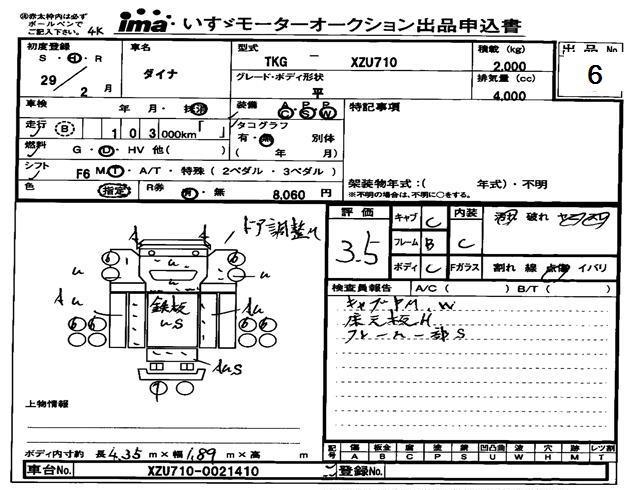 ※赤太枠内は必ず
ボールペンで
ご記入下さい。 4K
ima いすゞモーターオークション出品申込書
初度登録 車名 型式 TKG － XZU710 積載 (kg) 出品 No
S・H・R ダイナ 2,000 6
29／2月 グレード・ボディ形状 平 排気量 (cc) 4,000
車検 年 月・抹消 装備 A C P S P W 特記事項
走行 B 1 0 3 000km タコグラフ
有・無 別体
燃料 G・D・HV 他 ( ) ( 年 月 )
シフト F6 M T・A/T・特殊 (2ペダル・3ペダル) 架装物年式：( 年式)・不明
※不明の場合は、不明に○をする。
色 指定 R券 有・無 8,060 円
評価 3.5 キャブ C 内装 C 破れ
フレーム B
ボディ C Fガラス 割れ 線 点傷 イバリ
ドア調整
検査員報告 A/C ( ) B/T ( )
鉄板
u S
A u
A u
A u S
上物情報
ボディ内寸約 長 4.35 m×幅 1.89 m×高 m
記号 傷 A 板金 B 腐 C 塗 P 錆 S 凹凸曲 U 波 W 穴 H 跡 M レツ割 T
車台No. XZU710-0021410 登録No.